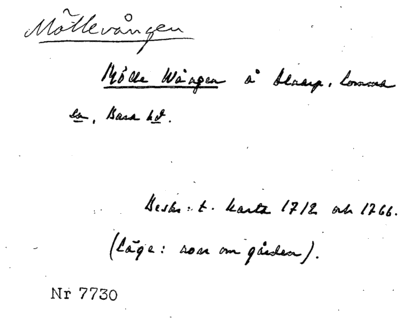 Möllevången
Mölle Wången å Alnarp, Lomma
sn, Bara hd.
Beskr. t. karta 1712 och 1766.
(Läge: norr om gården).
Nr 7730